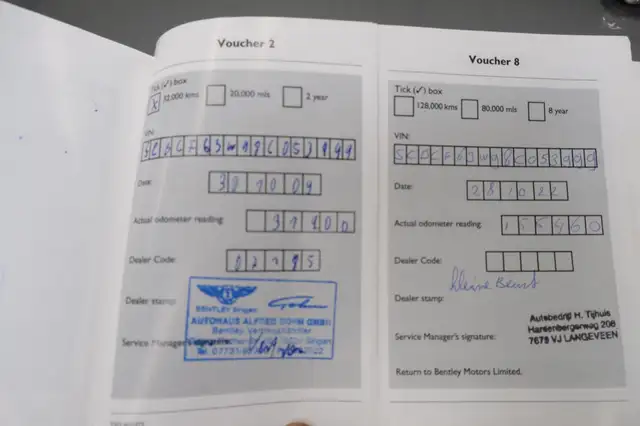 Voucher 2
Tick (✓) box
32,000 kms 20,000 mls 2 year
VIN:
Date: 30 10 09
Actual odometer reading: 37800
Dealer Code:
Dealer stamp:
BENTLEY Singen
AUTOHAUS ALFRED DOHM GMBH
Bentley Vertragshändler
Service Manager's
Voucher 8
Tick (✓) box
128,000 kms 80,000 mls 8 year
VIN:
SCBCF63W98C053999
Date: 281022
Actual odometer reading: 155960
Dealer Code:
kleine Beurt
Dealer stamp:
Autobedrijf H. Tijhuis
Hardenbergerweg 206
7679 VJ LANGEVEEN
Service Manager's signature:
Return to Bentley Motors Limited.